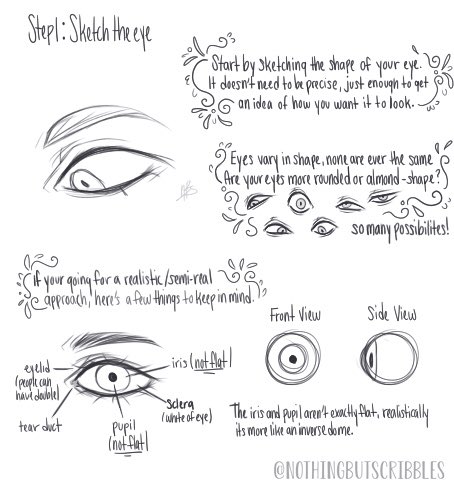 Step 1: Sketch the eye
Start by sketching the shape of your eye.
It doesn't need to be precise, just enough to get
an idea of how you want it to look.
Eyes vary in shape, none are ever the same
Are your eyes more rounded or almond-shape?
so many possibilites!
If your going for a realistic/semi-real
approach, here's a few things to keep in mind.
Front View
Side View
eyelid
(people can
have double)
iris (not flat)
Sclera
(white of eye)
tear duct
pupil
(not flat)
The iris and pupil aren't exactly flat, realistically
its more like an inverse dome.
@NOTHINGBUTSCRIBBLES